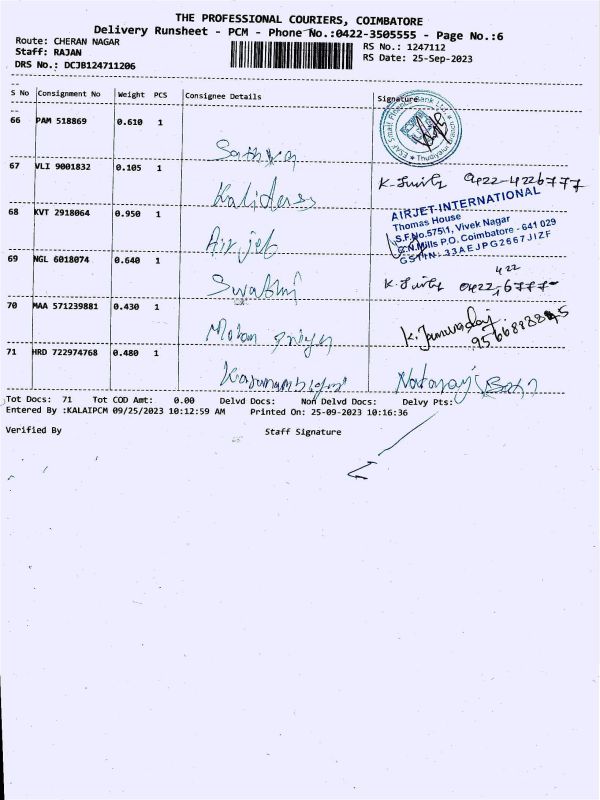 THE PROFESSIONAL COURIERS, COIMBATORE
Delivery Runsheet - PCM - Phone No.:0422-3505555 - Page No.:6
Route: CHERAN NAGAR
RS No.: 1247112
Staff: RAJAN
RS Date: 25-Sep-2023
DRS No.: DCJB124711206
S No Consignment No Weight PCS Consignee Details Signature
66 PAM 518869 0.610 1
Sathya
67 VLI 9001832 0.105 1
Kalidass
K. 0422-4226777
68 KVT 2918064 0.950 1
Air jet
AIRJET INTERNATIONAL
Thomas House
S.F.No.575\1, Vivek Nagar
Mills P.O. Coimbatore - 641 029
GSTIN: 33AEJPG2667J1ZF
69 NGL 6018074 0.640 1
Swathi
K.
422
70 MAA 571239881 0.430 1
Mohan Priya
K.
71 HRD 722974768 0.480 1
Nataraj
Tot Docs: 71 Tot COD Amt: 0.00 Delvd Docs: Non Delvd Docs: Delvy Pts:
Entered By :KALAIPCM 09/25/2023 10:12:59 AM Printed On: 25-09-2023 10:16:36
Verified By Staff Signature